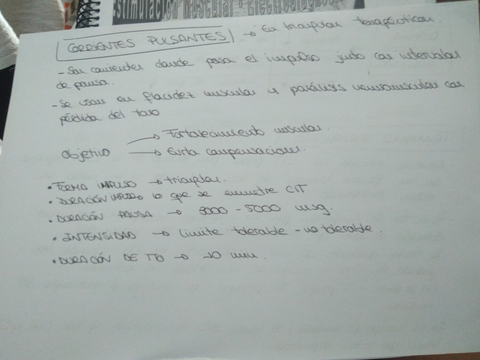 Estimulación Muscular - Electrodiagnós
CORRIENTES PULSANTES → Es triangular terapéutica.
- Son corrientes donde pasa el impulso junto con intervalos
de pausa.
- Se usan en flacidez muscular y parálisis neuromuscular con
pérdida del tono
objetivo → Fortalecimiento muscular
→ Evita compensaciones.
• FORMA IMPULSO → triangular.
• DURACIÓN IMPULSO lo que se encuentre CIT
• DURACIÓN PAUSA → 3000 - 5000 msg.
• INTENSIDAD → límite tolerable - no tolerable.
• DURACIÓN DE TTO → 10 min.